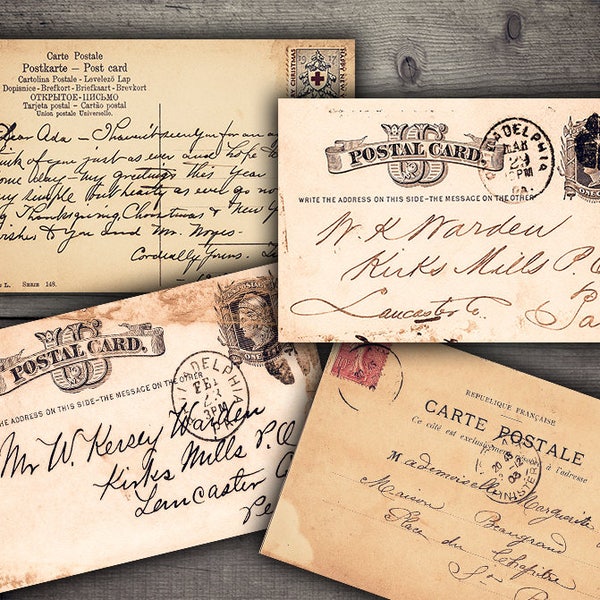 Carte Postale
Postkarte – Post card
Cartolina Postale - Levelező Lap
Dopisnice - Brefkort - Briefkaart - Brevkort
ОТКРЫТОЕ-ПИСЬМО
Tarjeta postal – Cartão postal
Union postale Universelle.
Dear Ada – I haven't seen you for an
think of you just as ever and hope to
my greetings this year
simple but hearty as ever go
Thanksgiving, Christmas & New
wishes to you and Mr. Noyes -
Cordially Yours.
L. Serie 148.
CHRISTMAS
1917
US
POSTAL CARD.
WRITE THE ADDRESS ON THIS SIDE-THE MESSAGE ON THE OTHER
ADELPHIA
MAR
29
PM
PA.
W. K Warden
Kirks Mills P.O
Lancaster Co.
Pa
US
POSTAL CARD.
ADDRESS ON THIS SIDE - THE MESSAGE ON THE OTHER
ADELPHIA
FEB
23
3PM
ONE
Mr W. Kersey Warden
Kirks Mills P.O
Lancaster C
Pe
RÉPUBLIQUE FRANÇAISE
CARTE POSTALE
Ce côté est exclusivement réservé à l'adresse
Mademoiselle Marguerite
Maison Beaugrand
Place du Chapitre